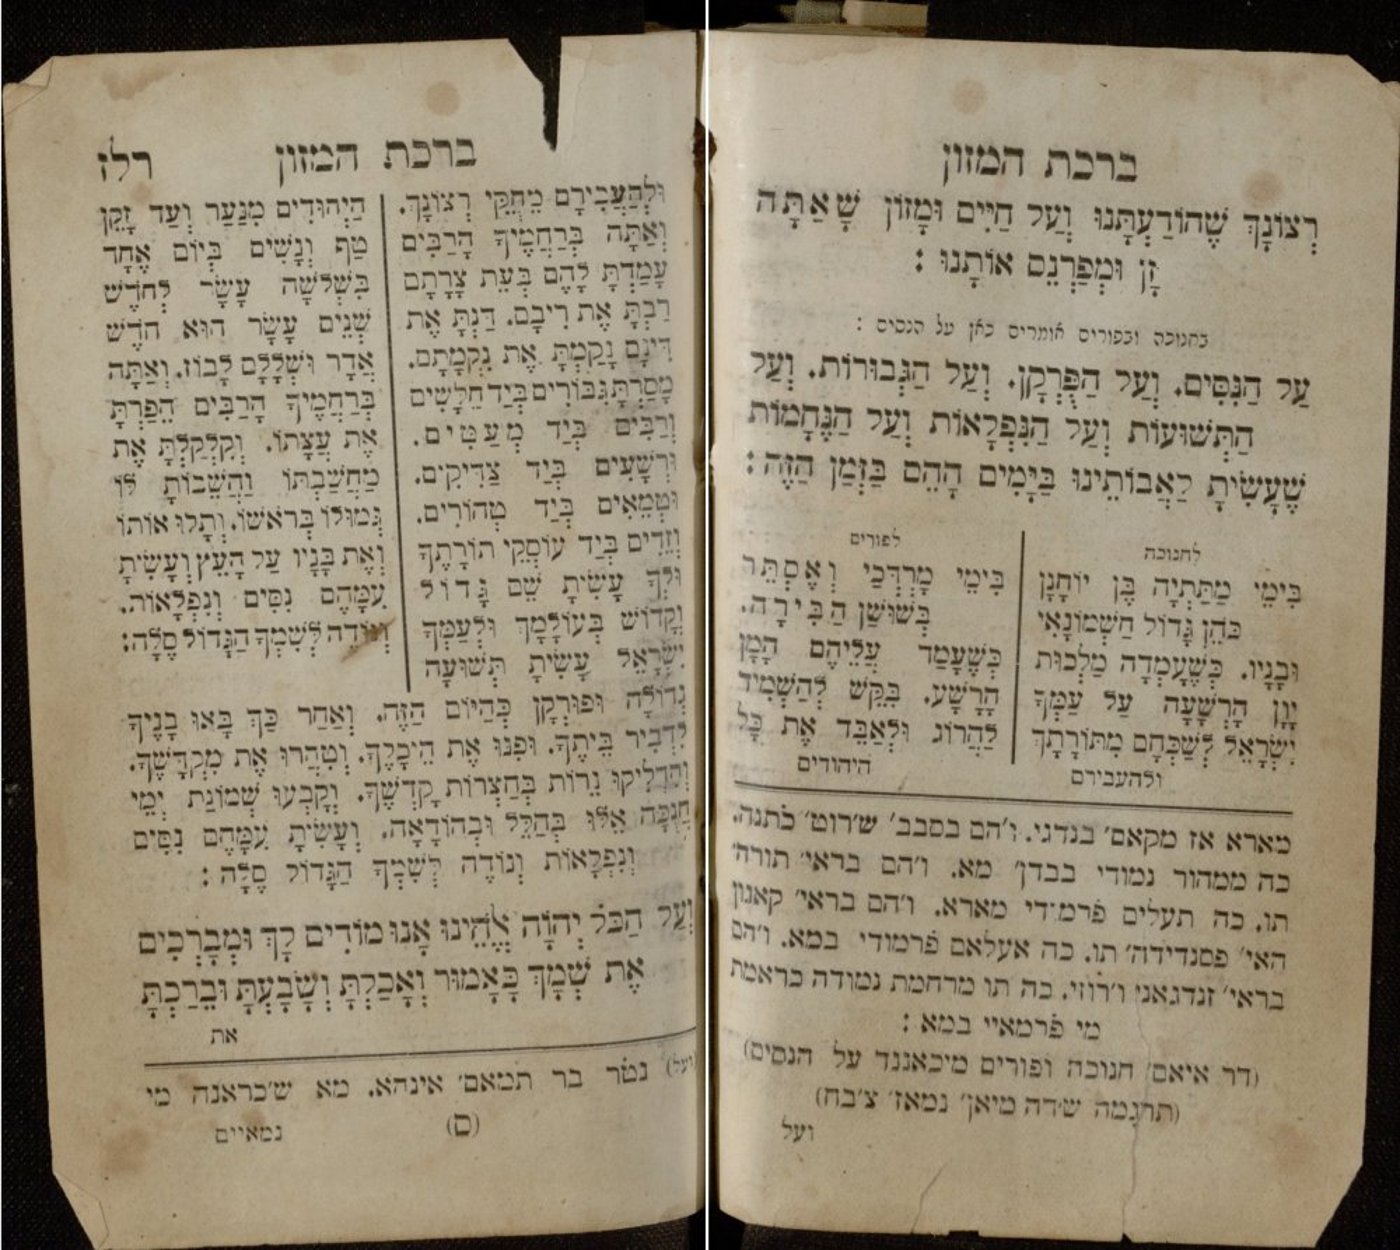 ברכת המזון
רְצוֹנָךְ שֶׁהוֹדַעְתָּנוּ וְעַל חַיִּים וּמָזוֹן שָׁאַתָּה
זָן וּמְפַרְנֵס אוֹתָנוּ :
בחנוכה ובפורים אומרים כאן על הנסים :
עַל הַנִּסִּים. וְעַל הַפֻּרְקָן. וְעַל הַגְּבוּרוֹת. וְעַל
הַתְּשׁוּעוֹת וְעַל הַנִּפְלָאוֹת וְעַל הַנֶּחָמוֹת
שֶׁעָשִׂיתָ לַאֲבוֹתֵינוּ בַּיָּמִים הָהֵם בַּזְּמַן הַזֶּה:
לחנוכה
בִּימֵי מַתַּתְיָה בֶּן יוֹחָנָן
כֹּהֵן גָּדוֹל חַשְׁמוֹנָאִי
וּבָנָיו. כְּשֶׁעָמְדָה מַלְכוּת
יָוָן הָרְשָׁעָה עַל עַמְּךָ
יִשְׂרָאֵל לְשַׁכְּחָם מִתּוֹרָתָךְ
ולהעבירם
לפורים
בִּימֵי מָרְדְּכַי וְאֶסְתֵּר
בְּשׁוּשַׁן הַבִּירָה.
כְּשֶׁעָמַד עֲלֵיהֶם הָמָן
הָרָשָׁע. בִּקֵּשׁ לְהַשְׁמִיד
לַהֲרוֹג וּלְאַבֵּד אֶת כָּל
היהודים
מארא אז מקאם׳ בנדגי. ו׳הם בסבב׳ ש׳רוט׳ כתנה.
כה ממהור נמודי בבדן׳ מא. ו׳הם בראי׳ תורה׳
תו. כה תעלים פרמ׳די מארא. ו׳הם בראי׳ קאנון
האי׳ פסנדידה׳ תו. כה אעלאם פרמודי במא. ו׳הם
בראי׳ זנדגאני ו׳רוזי. כה תו מרחמת נמודה כראמת
מי פרמאיי במא :
(דר איאם׳ חנוכה ופורים מיכאננד על הנסים)
(תרגמה ש׳דה מיאן׳ נמאז׳ צ׳בח)
ועל
ברכת המזון רלז
וּלְהַעֲבִירָם מֵחֻקֵּי רְצוֹנָךְ.
וְאַתָּה בְּרַחֲמֶיךָ הָרַבִּים
עָמַדְתָּ לָהֶם בְּעֵת צָרָתָם
רַבְתָּ אֶת רִיבָם. דַּנְתָּ אֶת
דִּינָם נָקַמְתָּ אֶת נִקְמָתָם.
מָסַרְתָּ גִבּוֹרִים בְּיַד חַלָּשִׁים
וְרַבִּים בְּיַד מְעַטִּים.
וּרְשָׁעִים בְּיַד צַדִּיקִים.
וּטְמֵאִים בְּיַד טְהוֹרִים.
וְזֵדִים בְּיַד עוֹסְקֵי תוֹרָתֶךָ
וּלְךָ עָשִׂיתָ שֵׁם גָּדוֹל
וְקָדוֹשׁ בְּעוֹלָמָךְ וּלְעַמְּךָ
יִשְׂרָאֵל עָשִׂיתָ תְּשׁוּעָה
הַיְהוּדִים מִנַּעַר וְעַד זָקֵן
טַף וְנָשִׁים בְּיוֹם אֶחָד
בִּשְׁלֹשָׁה עָשָׂר לְחֹדֶשׁ
שְׁנֵים עָשָׂר הוּא חֹדֶשׁ
אֲדָר וּשְׁלָלָם לָבוֹז. וְאַתָּה
בְּרַחֲמֶיךָ הָרַבִּים הֵפַרְתָּ
אֶת עֲצָתוֹ. וְקִלְקַלְתָּ אֶת
מַחֲשַׁבְתּוֹ וַהֲשֵׁבוֹתָ לוֹ
גְּמוּלוֹ בְּרֹאשׁוֹ. וְתָלוּ אוֹתוֹ
וְאֶת בָּנָיו עַל הָעֵץ וְעָשִׂיתָ
עִמָּהֶם נִסִּים וְנִפְלָאוֹת.
וְנוֹדֶה לְשִׁמְךָ הַגָּדוֹל סֶלָה:
גְּדוֹלָה וּפוּרְקָן כְּהַיּוֹם הַזֶּה. וְאַחַר כַּךְ בָּאוּ בָנֶיךָ
לִדְבִיר בֵּיתֶךָ. וּפִנּוּ אֶת הֵיכָלֶךָ. וְטִהֲרוּ אֶת מִקְדָּשֶׁךָ.
וְהִדְלִיקוּ נֵרוֹת בְּחַצְרוֹת קָדְשֶׁךָ. וְקָבְעוּ שְׁמוֹנַת יְמֵי
חֲנֻכָּה אֵלּוּ בְּהַלֵּל וּבְהוֹדָאָה. וְעָשִׂיתָ עִמָּהֶם נִסִּים
וְנִפְלָאוֹת וְנוֹדֶה לְשִׁמְךָ הַגָּדוֹל סֶלָה :
וְעַל הַכֹּל יְהֹוָה אֱלֹהֵינוּ אָנוּ מוֹדִים לָךְ וּמְבָרְכִים
אֶת שְׁמָךְ כָּאָמוּר וְאָכַלְתָּ וְשָׂבָעְתָּ וּבֵרַכְתָּ
את
(ועל) נט׳ר בר תמאם׳ אינהא. מא ש׳כראנה מי
(ם) נמאיים